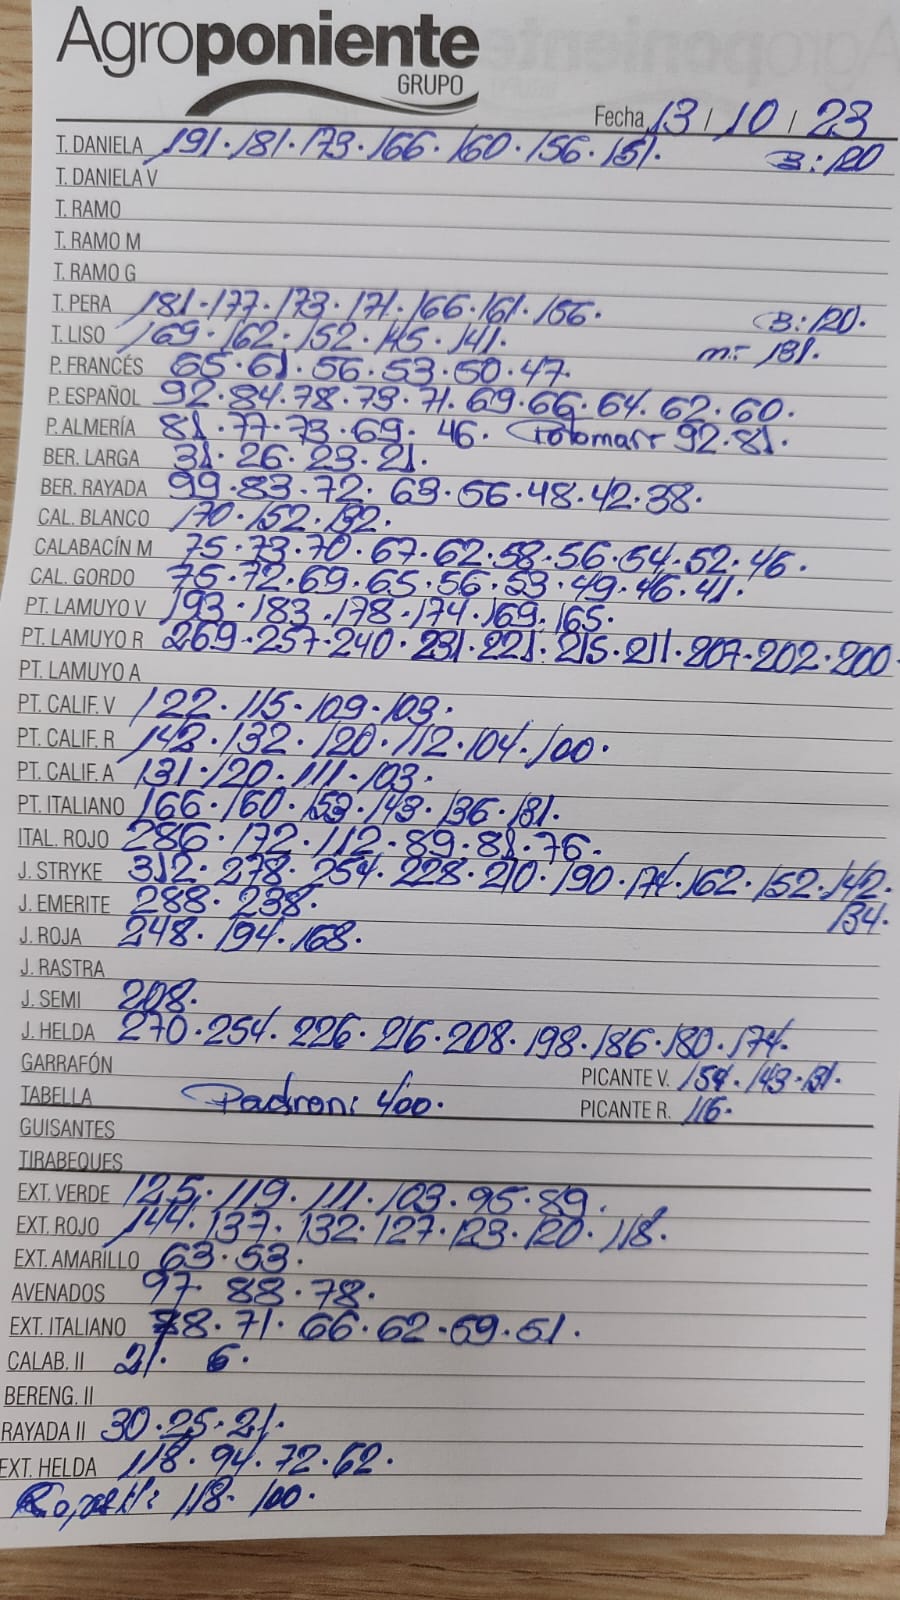 Agroponiente
GRUPO
Fecha 13 / 10 / 23
T. DANIELA 191 · 181 · 173 · 166 · 160 · 156 · 151. B: 120
T. DANIELA V
T. RAMO
T. RAMO M
T. RAMO G
T. PERA 181 · 177 · 173 · 171 · 166 · 161 · 156. B: 120.
T. LISO 169 · 162 · 152 · 145 · 141. m: 131.
P. FRANCÉS 65 · 61 · 56 · 53 · 50 · 47.
P. ESPAÑOL 92 · 84 · 78 · 73 · 71 · 69 · 66 · 64 · 62 · 60.
P. ALMERÍA 81 · 77 · 73 · 69 · 46. 92 · 81.
BER. LARGA 31 · 26 · 23 · 21.
BER. RAYADA 99 · 83 · 72 · 63 · 56 · 48 · 42 · 38.
CAL. BLANCO 170 · 152 · 132.
CALABACÍN M 75 · 73 · 70 · 67 · 62 · 58 · 56 · 54 · 52 · 46.
CAL. GORDO 75 · 72 · 69 · 65 · 56 · 53 · 49 · 46 · 41.
PT. LAMUYO V 193 · 183 · 178 · 174 · 169 · 165.
PT. LAMUYO R 269 · 257 · 240 · 231 · 221 · 215 · 211 · 207 · 202 · 200.
PT. LAMUYO A
PT. CALIF. V 122 · 115 · 109 · 103.
PT. CALIF. R 142 · 132 · 120 · 112 · 104 · 100.
PT. CALIF. A 131 · 120 · 111 · 103.
PT. ITALIANO 166 · 160 · 153 · 143 · 136 · 131.
ITAL. ROJO 286 · 172 · 112 · 89 · 81 · 76.
J. STRYKE 312 · 278 · 254 · 228 · 210 · 190 · 174 · 162 · 152 · 142.
134.
J. EMERITE 288 · 238.
J. ROJA 248 · 194 · 168.
J. RASTRA
J. SEMI 208.
J. HELDA 270 · 254 · 226 · 216 · 208 · 198 · 186 · 180 · 174.
GARRAFÓN PICANTE V. 154 · 143 · 131.
TABELLA Padron: 400. PICANTE R. 116.
GUISANTES
TIRABEQUES
EXT. VERDE 125 · 119 · 111 · 103 · 95 · 89.
EXT. ROJO 144 · 137 · 132 · 127 · 123 · 120 · 118.
EXT. AMARILLO 63 · 53.
AVENADOS 97 · 88 · 78.
EXT. ITALIANO 78 · 71 · 66 · 62 · 59 · 51.
CALAB. II 21 · 6.
BERENG. II
RAYADA II 30 · 25 · 21.
EXT. HELDA 118 · 94 · 72 · 62.
118 · 100.